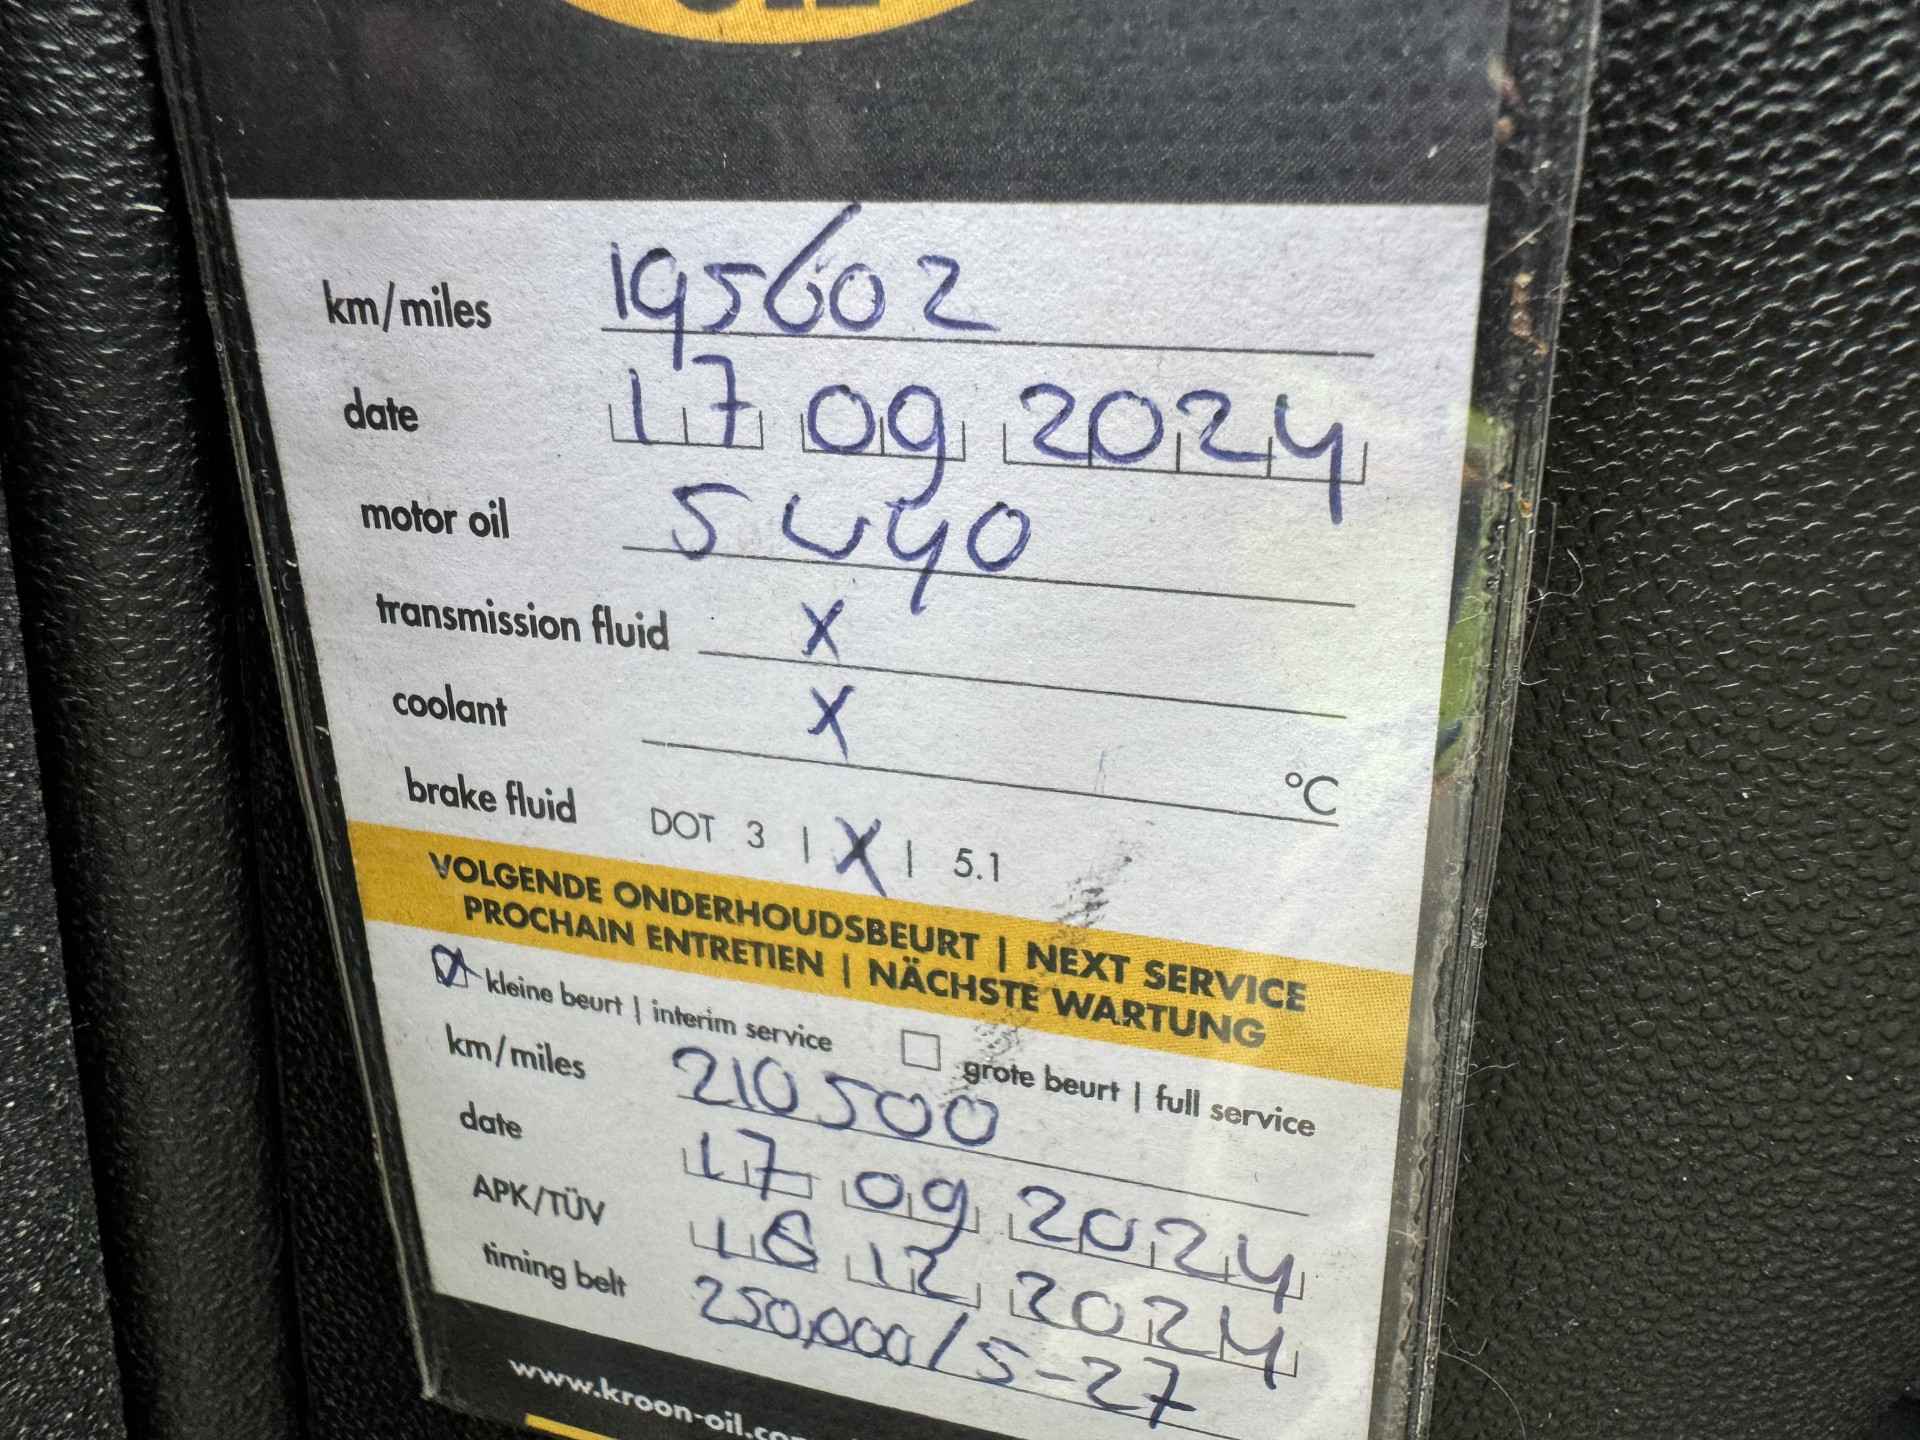 OIL
km/miles 195602
date 17 09 2024
motor oil 5w40
transmission fluid X
coolant X °C
brake fluid DOT 3 | X | 5.1
VOLGENDE ONDERHOUDSBEURT | NEXT SERVICE
PROCHAIN ENTRETIEN | NÄCHSTE WARTUNG
kleine beurt | interim service grote beurt | full service
km/miles 210500
date 17 09 2024
APK/TÜV 12 2024
timing belt 250,000/5-27
www.kroon-oil.co